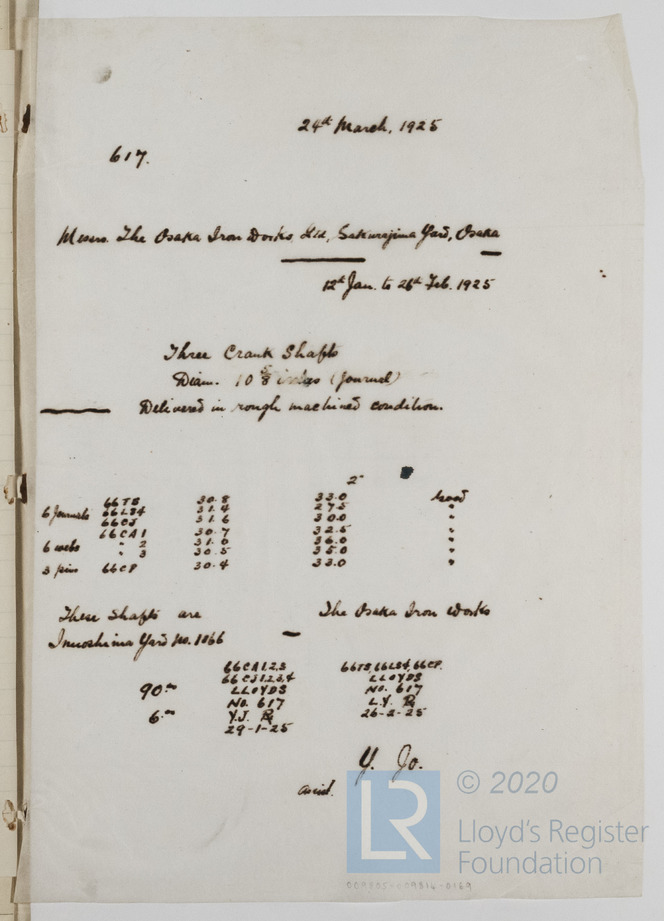 24th March, 1925
617.
Messrs. The Osaka Iron Works, Ltd, Sakurajima Yard, Osaka
12th Jan. to 26th Feb. 1925
Three Crank Shafts
Diam. 10 5/8 inches (Journal)
Delivered in rough machined condition.
2"
66TS 30.8 33.0 Good
6 Journals 66LS4 31.4 27.5 "
66CJ 31.6 30.0 "
66CA1 30.7 32.5 "
6 webs " 2 31.0 36.0 "
" 3 30.5 35.0 "
3 pins 66CP 30.4 33.0 "
These Shafts are The Osaka Iron Works
Innoshima Yard No. 1066
66CA1,2,3 66TS, 66LS4, 66CP.
66CJ1,2,3,4 LLOYDS
90 LLOYDS No. 617
No. 617 L.Y.
6 Y.J. 26-2-25
29-1-25
Y. Jo.
© 2020
LR
Lloyd's Register
Foundation
009805-009814-0169